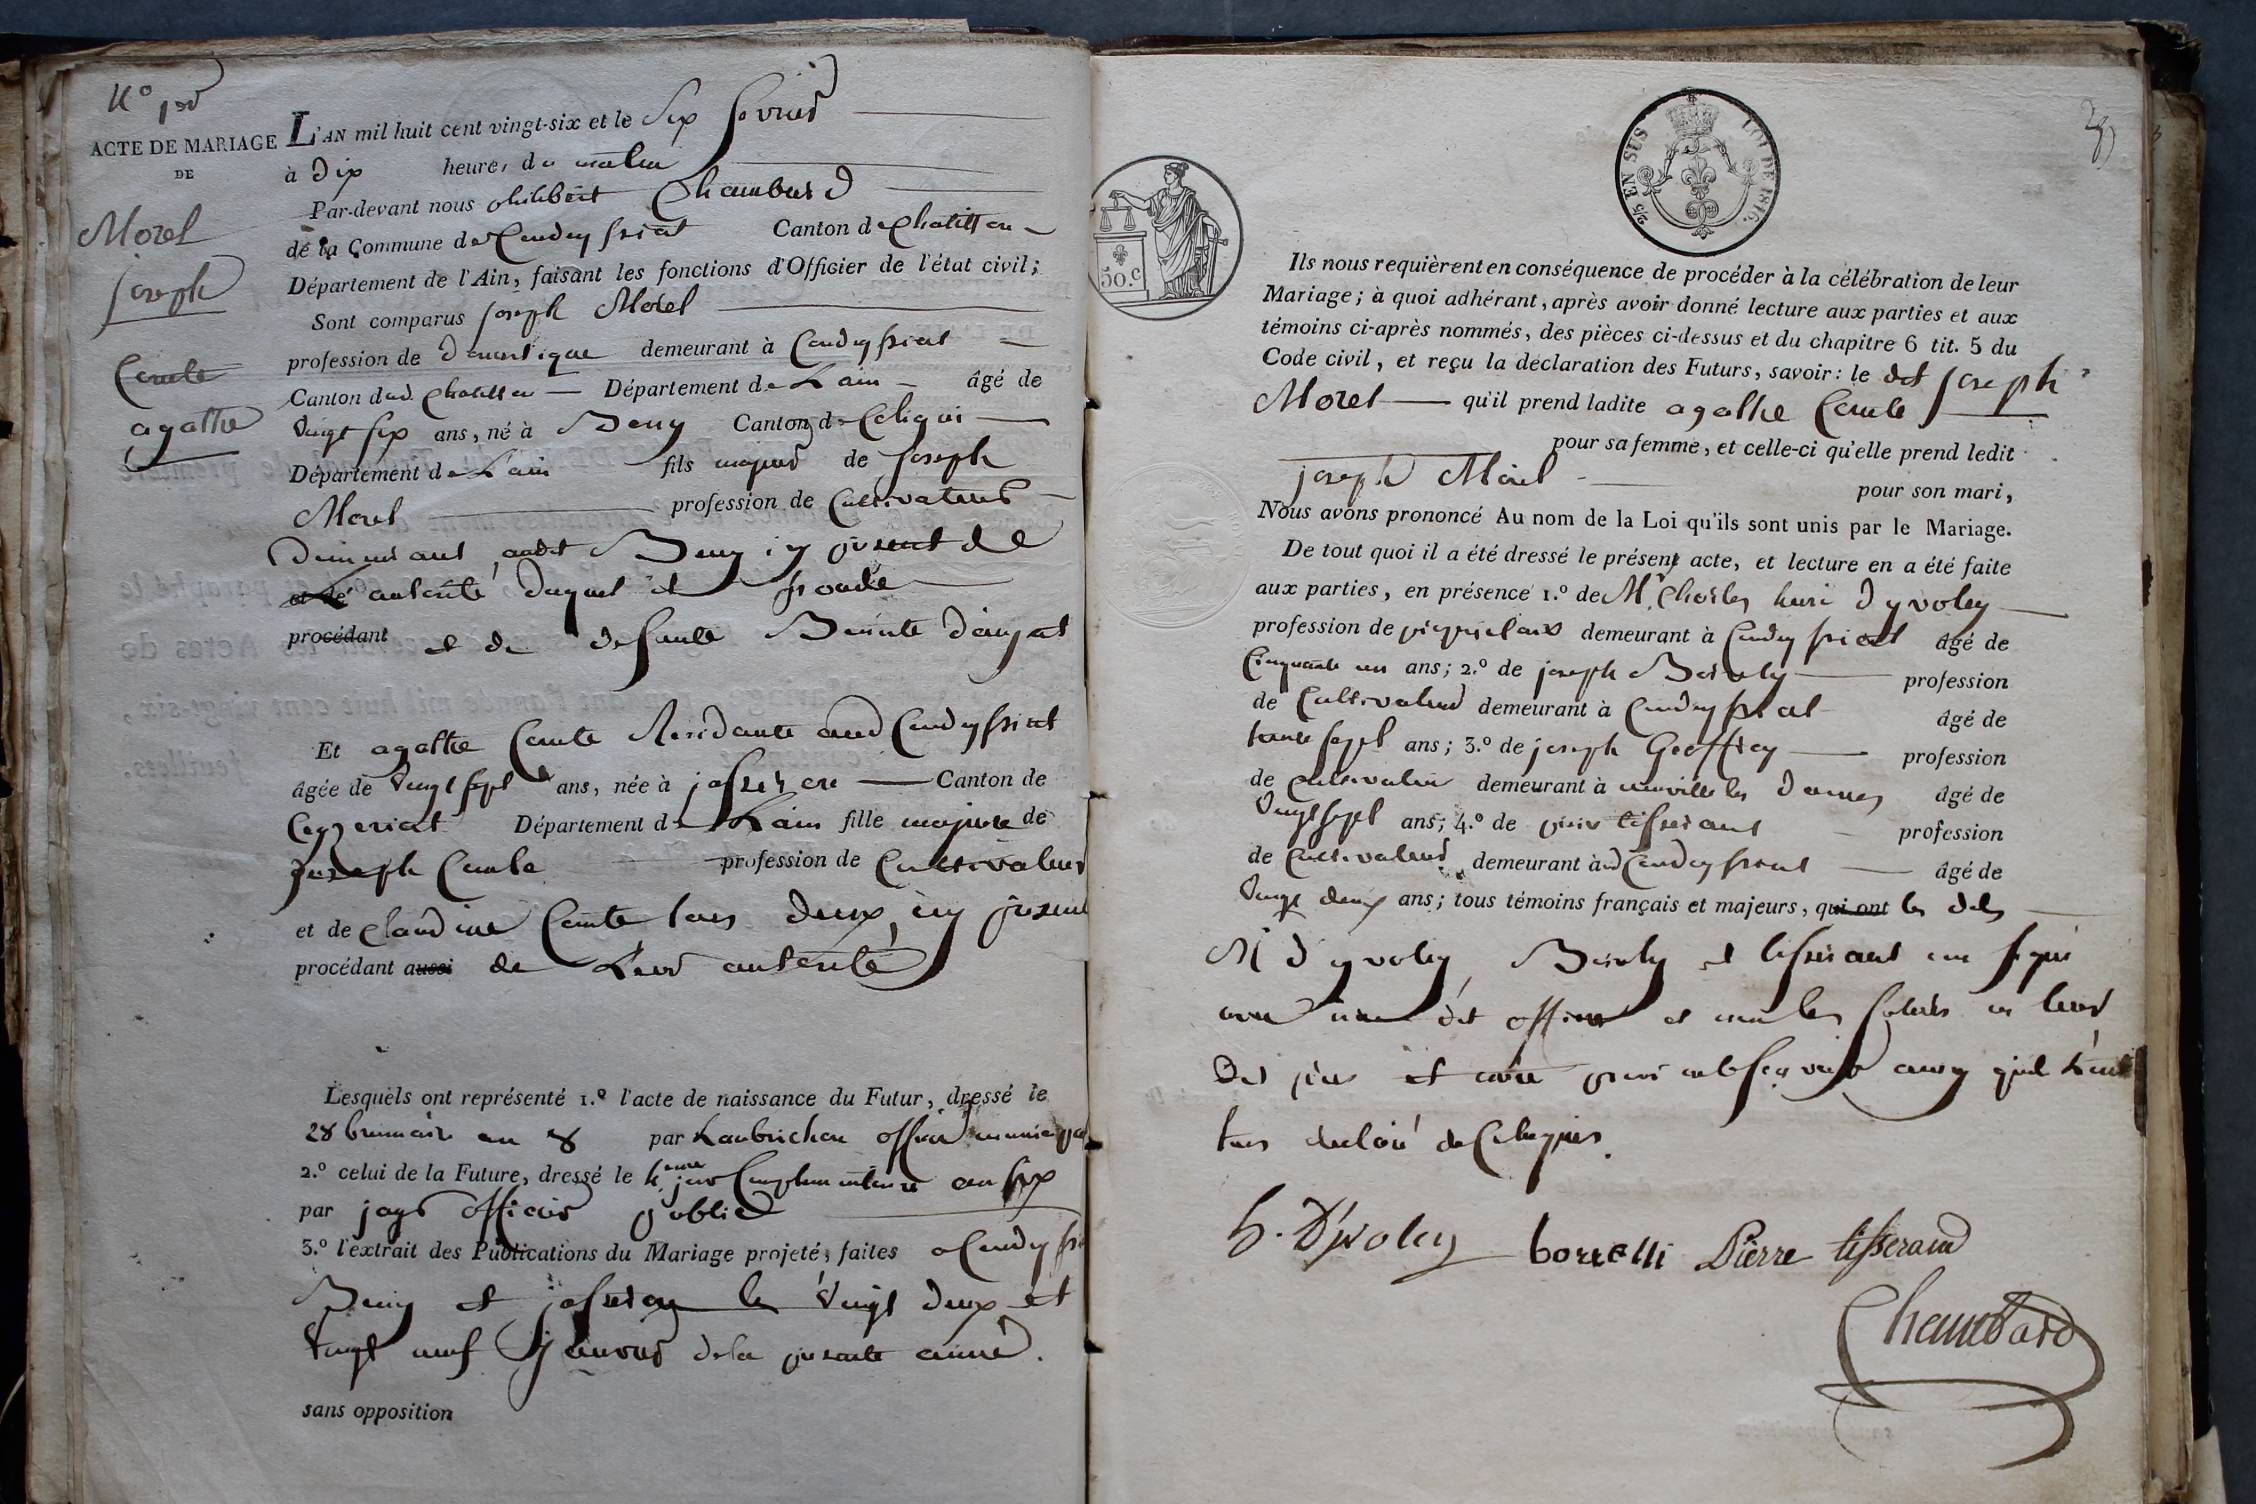 N.o 1er
ACTE DE MARIAGE
DE
Morel
joseph
Comte
agathe
L'AN mil huit cent vingt-six et le Six fevrier
à dix heures du matin
Par-devant nous philibert Chambard
de la Commune de Condeyssiat Canton de Chatillon
Département de l'Ain, faisant les fonctions d'Officier de l'état civil;
Sont comparus joseph Morel
profession de domestique demeurant à Condeyssiat
Canton dud. Chatillon Département de Lain âgé de
vingt six ans, né à Beny Canton de Coligni
Département de Lain fils majeur de joseph
Morel profession de Cultivateur
demeurant audt Beny icy présent de
et de autorité duquel il
procédant et de defunte Benoite
Et agathe Comte Residante aud Condeyssiat
âgée de vingt sept ans, née à jasseron Canton de
Ceyzeriat Département de Lain fille majeure de
joseph Comte profession de Cultivateur
et de Claudine Comte tous deux icy présent
procédant aussi de Leur autorité
Lesquels ont représenté 1.º l'acte de naissance du Futur, dressé le
28 brumaire an 8 par officier
2.º celui de la Future, dressé le 4eme jour Complementaire an six
par officier public
3.º l'extrait des Publications du Mariage projeté, faites a
Beny et jasseron les vingt deux et
vingt neuf janvier de la presente année.
sans opposition
5/2 EN SUS LOI DE 1816.
50.c
Ils nous requièrent en conséquence de procéder à la célébration de leur
Mariage; à quoi adhérant, après avoir donné lecture aux parties et aux
témoins ci-après nommés, des pièces ci-dessus et du chapitre 6 tit. 5 du
Code civil, et reçu la déclaration des Futurs, savoir: le dit joseph
Morel qu'il prend ladite agathe Comte
pour sa femme, et celle-ci qu'elle prend ledit
joseph Morel pour son mari,
Nous avons prononcé Au nom de la Loi qu'ils sont unis par le Mariage.
De tout quoi il a été dressé le présent acte, et lecture en a été faite
aux parties, en présence 1.º de Mr. Charles henri dyvoley
profession de propriétaire demeurant à Condeyssiat âgé de
Cinquante un ans; 2.º de joseph profession
de Cultivateur demeurant à Condeyssiat âgé de
trente sept ans; 3.º de joseph Geoffray profession
de cultivateur demeurant à neuville les Dames âgé de
vingt sept ans; 4.º de pierre tisserant profession
de Cultivateur demeurant à Condeyssiat âgé de
vingt deux ans; tous témoins français et majeurs, qui ont les dits
M dyvoley et tisserant ont signé
avec nous dit officier et non les futurs ni leur
et autre pour ne savoir
de Ce Requis.
h. D'ivoley borrelli Pierre tisserand
Chambard